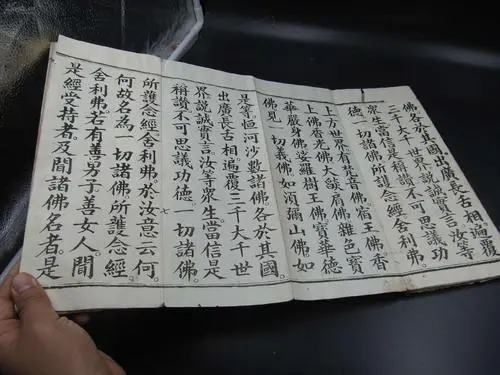 佛各於其國出廣長舌相遍覆
三千大千世界說誠實言汝等
眾生當信是稱讚不可思議功
德一切諸佛所護念經舍利弗
上方世界有梵音佛。宿王佛香
上佛香光佛大燄肩佛雜色寶
華嚴身佛娑羅樹王佛寶華德
佛見一切義佛如須彌山佛如
是等恒河沙數諸佛各於其國。
出廣長舌相遍覆三千大千世
界說誠實言汝等眾生當信是
稱讚不可思議功德一切諸佛。
七
所護念經舍利弗。於汝意云何。
何故名為一切諸佛。所護念經
舍利弗。若有善男子善女人。聞
是經受持者。及聞諸佛名者。是